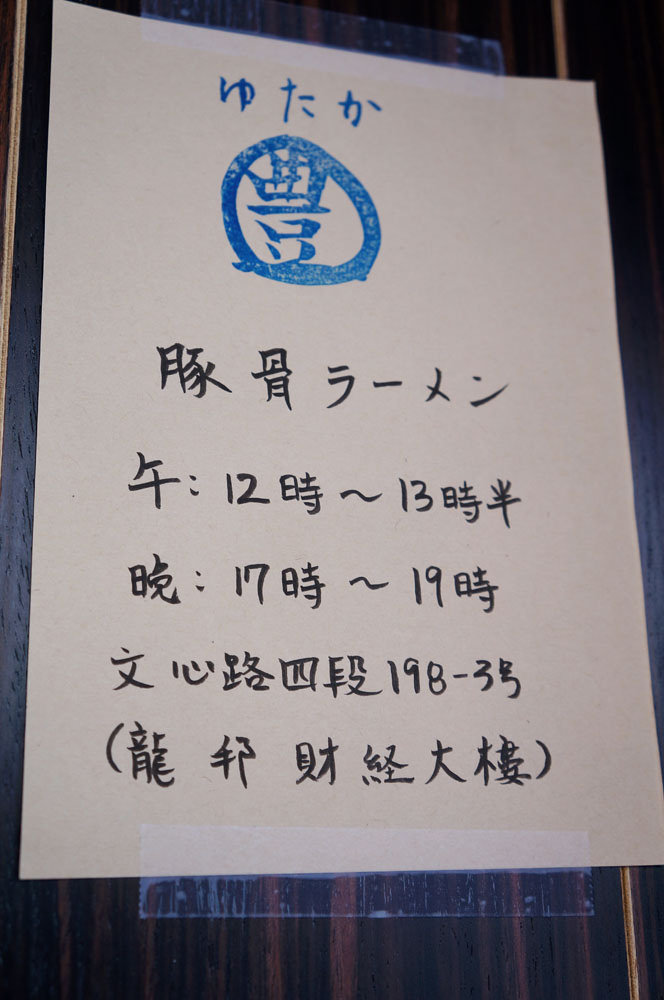 ゆたか
豊
豚骨ラーメン
午：12時～13時半
晩：17時～19時
文心路四段198-3号
(龍邦財経大樓)